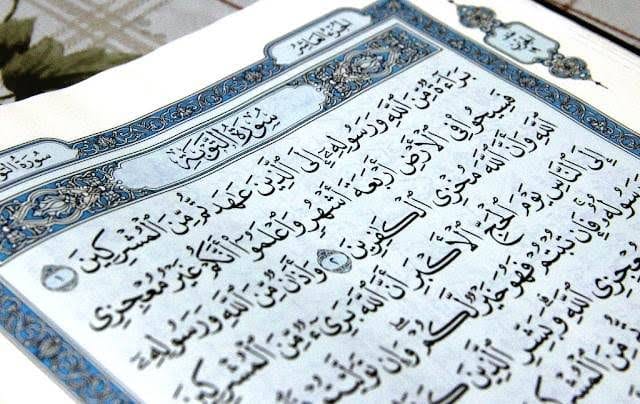 الجزء العاشر
سورة التو
سُورَةُ التَّوْبَةِ
بَرَآءَةٌ مِّنَ ٱللَّهِ وَرَسُولِهِۦٓ إِلَى ٱلَّذِينَ عَٰهَدتُّم مِّنَ ٱلْمُشْرِكِينَ ١
فَسِيحُوا۟ فِى ٱلْأَرْضِ أَرْبَعَةَ أَشْهُرٍ وَٱعْلَمُوٓا۟ أَنَّكُمْ غَيْرُ مُعْجِزِى
ٱللَّهِ وَأَنَّ ٱللَّهَ مُخْزِى ٱلْكَٰفِرِينَ ٢ وَأَذَٰنٌ مِّنَ ٱللَّهِ وَرَسُولِهِۦٓ
إِلَى ٱلنَّاسِ يَوْمَ ٱلْحَجِّ ٱلْأَكْبَرِ أَنَّ ٱللَّهَ بَرِىٓءٌ مِّنَ ٱلْمُشْرِكِينَ
رَسُولُهُۥ فَإِن تُبْتُمْ فَهُوَ خَيْرٌ لَّكُمْ وَإِن تَوَلَّيْتُمْ
مُعْجِزِى ٱللَّهِ وَبَشِّرِ ٱلَّذِينَ
مِّنَ ٱلْمُشْرِكِينَ